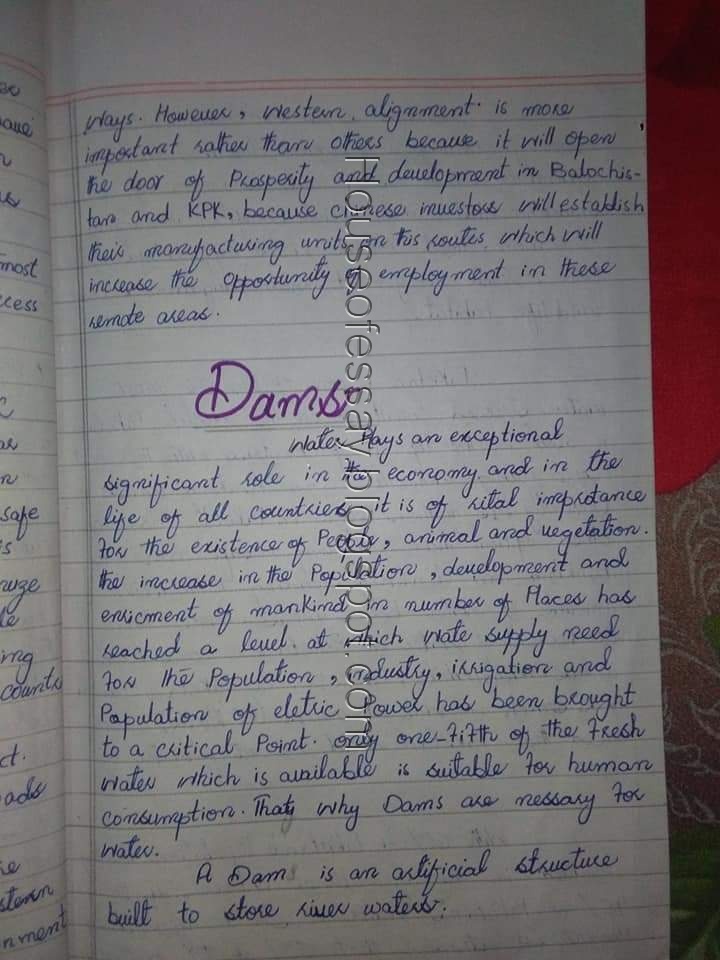 Ways. However, western alignment is more
important rather than others because it will open
the door of Prosperity and development in Balochis-
tan and KPK, because chinese investors will establish
their manufacturing units on this routes which will
increase the opportunity of employment in these
remote areas.
Dams
Water Plays an exceptional
significant role in the economy and in the
life of all countries it is of vital improtance
for the existence of People, animal and vegetation.
the increase in the Population, development and
enricment of mankind in number of Places has
reached a level at which wate supply need
for the Population, industry, irrigation and
Population of eletric Power has been brought
to a critical Point. only one-fifth of the fresh
water which is available is suitable for human
consumption. Thats why Dams are nessary for
water.
A Dam is an artificial structure
built to store river waters.
Houseofessay.blogspot.com
most
ccess
safe
counts
ct.
ads
stern
nment